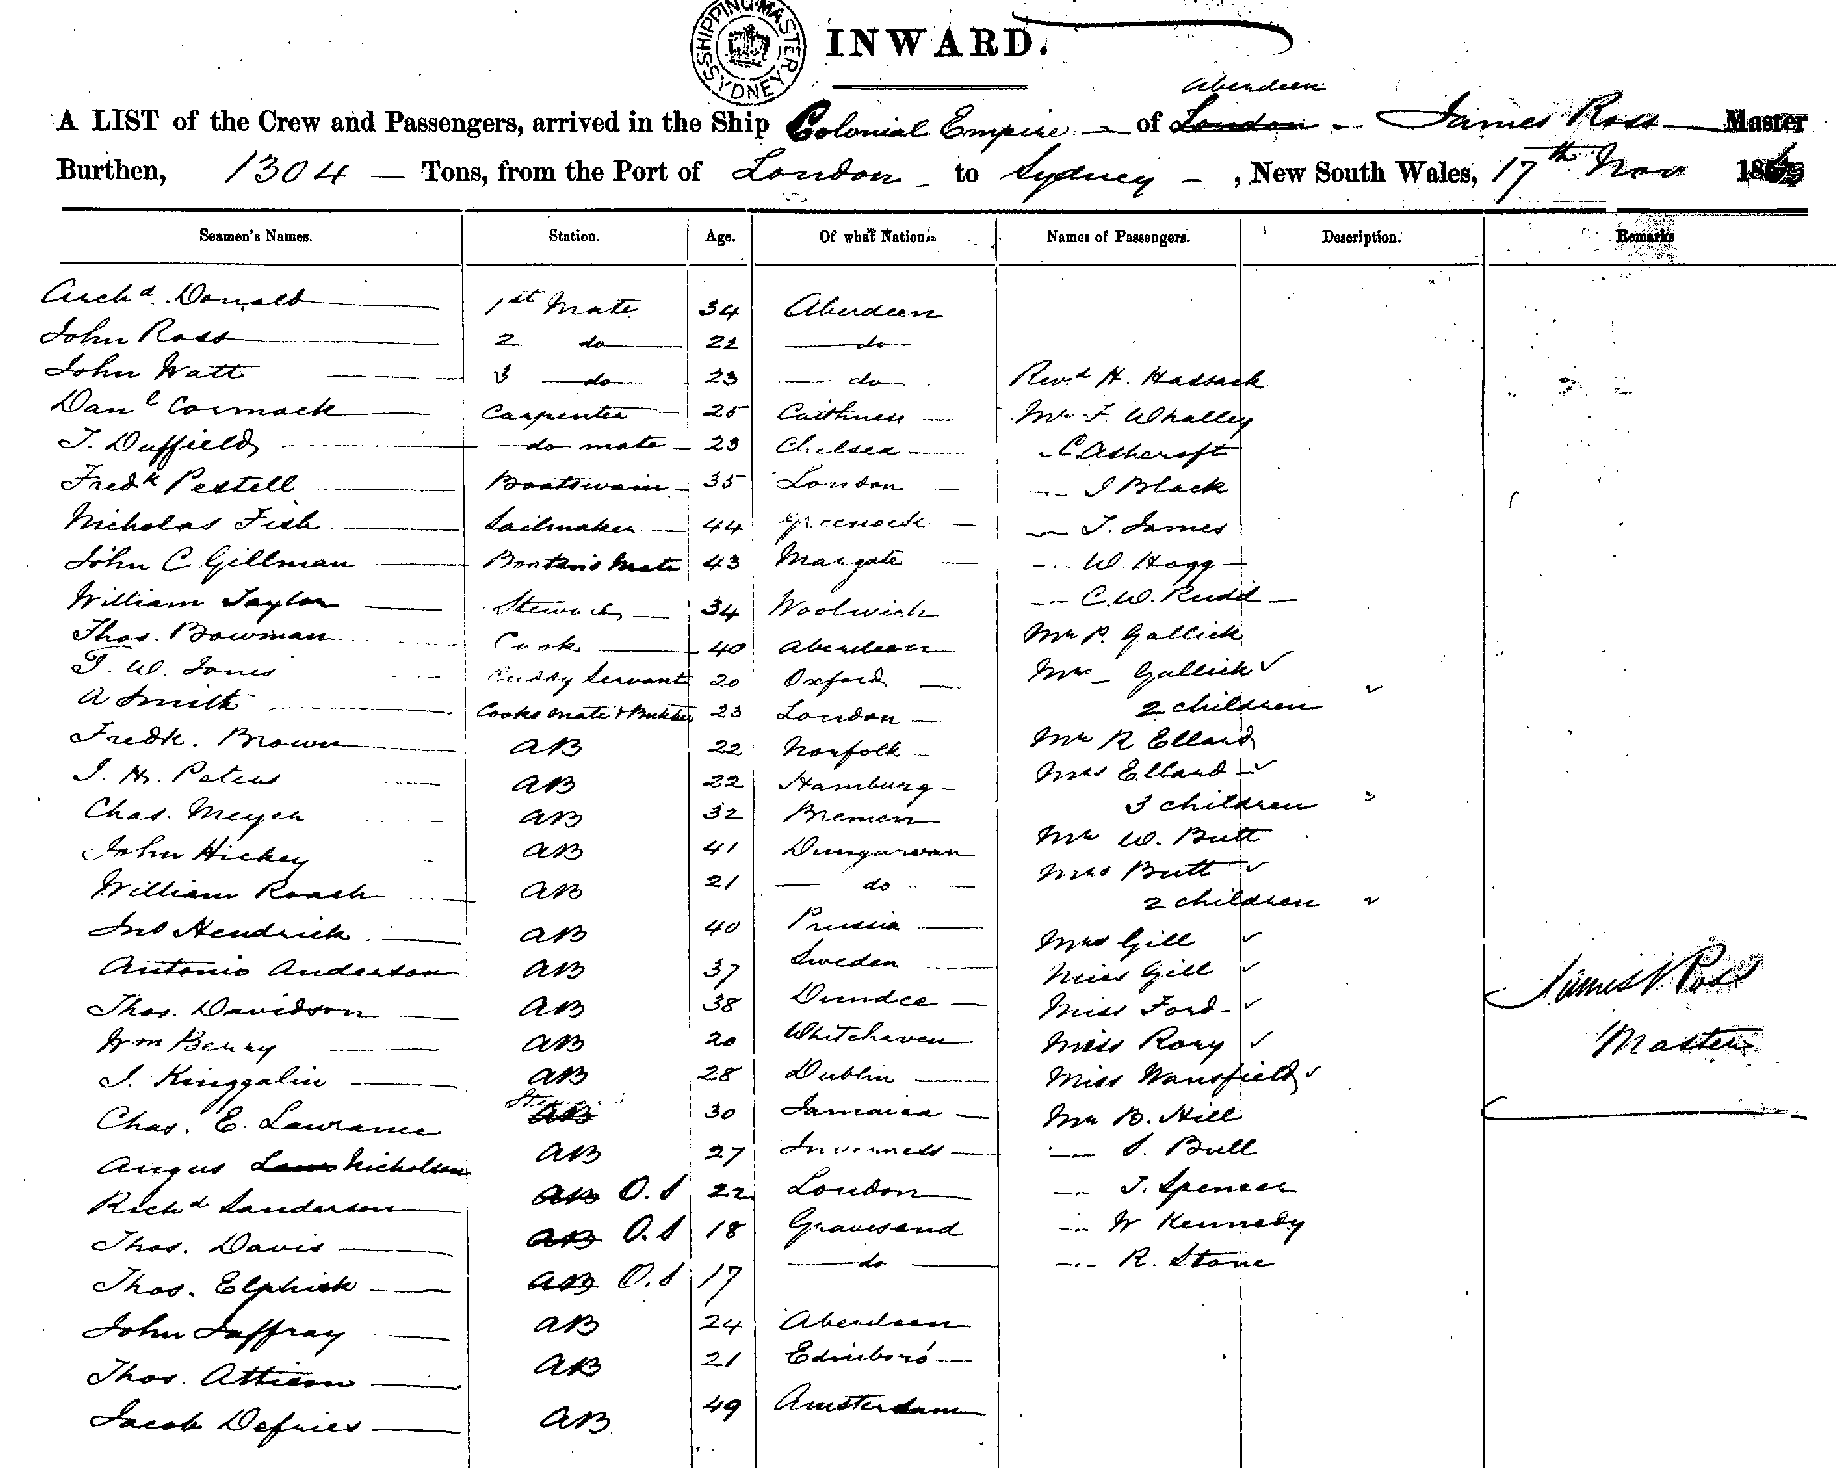 SHIPPING MASTER SYDNEY
INWARD.
Aberdeen
A LIST of the Crew and Passengers, arrived in the Ship Colonial Empire - of London - James Ross Master
Burthen, 1304 - Tons, from the Port of London - to Sydney -, New South Wales, 17th Nov 186
Seamen's Names. Station. Age. Of what Nation. Names of Passengers. Description. Remarks
Archd. Donald 1st Mate 34 Aberdeen
John Ross 2 do 21 do
John Watt 3 do 23 do Revd H. Hassack
Danl Cormack Carpenter 25 Caithness Mr F Whalley
T. Duffield do mate 23 Chelsea C Ashcroft
Fredk Pestell Boatswain 35 London J Black
Nicholas Fish Sailmaker 44 Greenock T. James
John C Gillman Boatswn's Mate 43 Margate W Hogg
William Taylor Steward 34 Woolwich C. W. Rudd
Thos. Bowman Cook 40 Aberdeen Mr P. Gallick
T. W. Jones Cuddy Servant 20 Oxford Mrs Gallick
A Smith Cooks mate & 23 London 2 children
Fredk. Brown AB 22 Norfolk Mr R Ellard
J. H. Peters AB 22 Hamburg Mrs Ellard
Chas. Meyer AB 32 Bremen 3 children
John Hickey AB 41 Dungarvan Mr W. Butt
William Roach AB 21 do Mrs Butt
2 children
Jno Hendrick AB 40 Prussia Mrs Gill
Antonio Anderson AB 37 Sweden Miss Gill
Thos. Davidson AB 38 Dundee Miss Ford
Wm Berry AB 20 Whitehaven Miss Rory
J. Kinggalin AB 28 Dublin Miss Wansfield
Chas. E. Lawrance AB 30 Jamaica Mr B. Hill
Angus Laws Nicholson AB 27 Inverness S. Bull
Richd Sanderson AB O.S 22 London J. Spencer
Thos. Davis AB O.S 18 Gravesend W Kennedy
Thos. Elphick AB O.S 17 do R. Stone
John Jaffray AB 24 Aberdeen
Thos. Attison AB 21 Edinboro'
Jacob Defries AB 49 Amsterdam
James Ross
Master